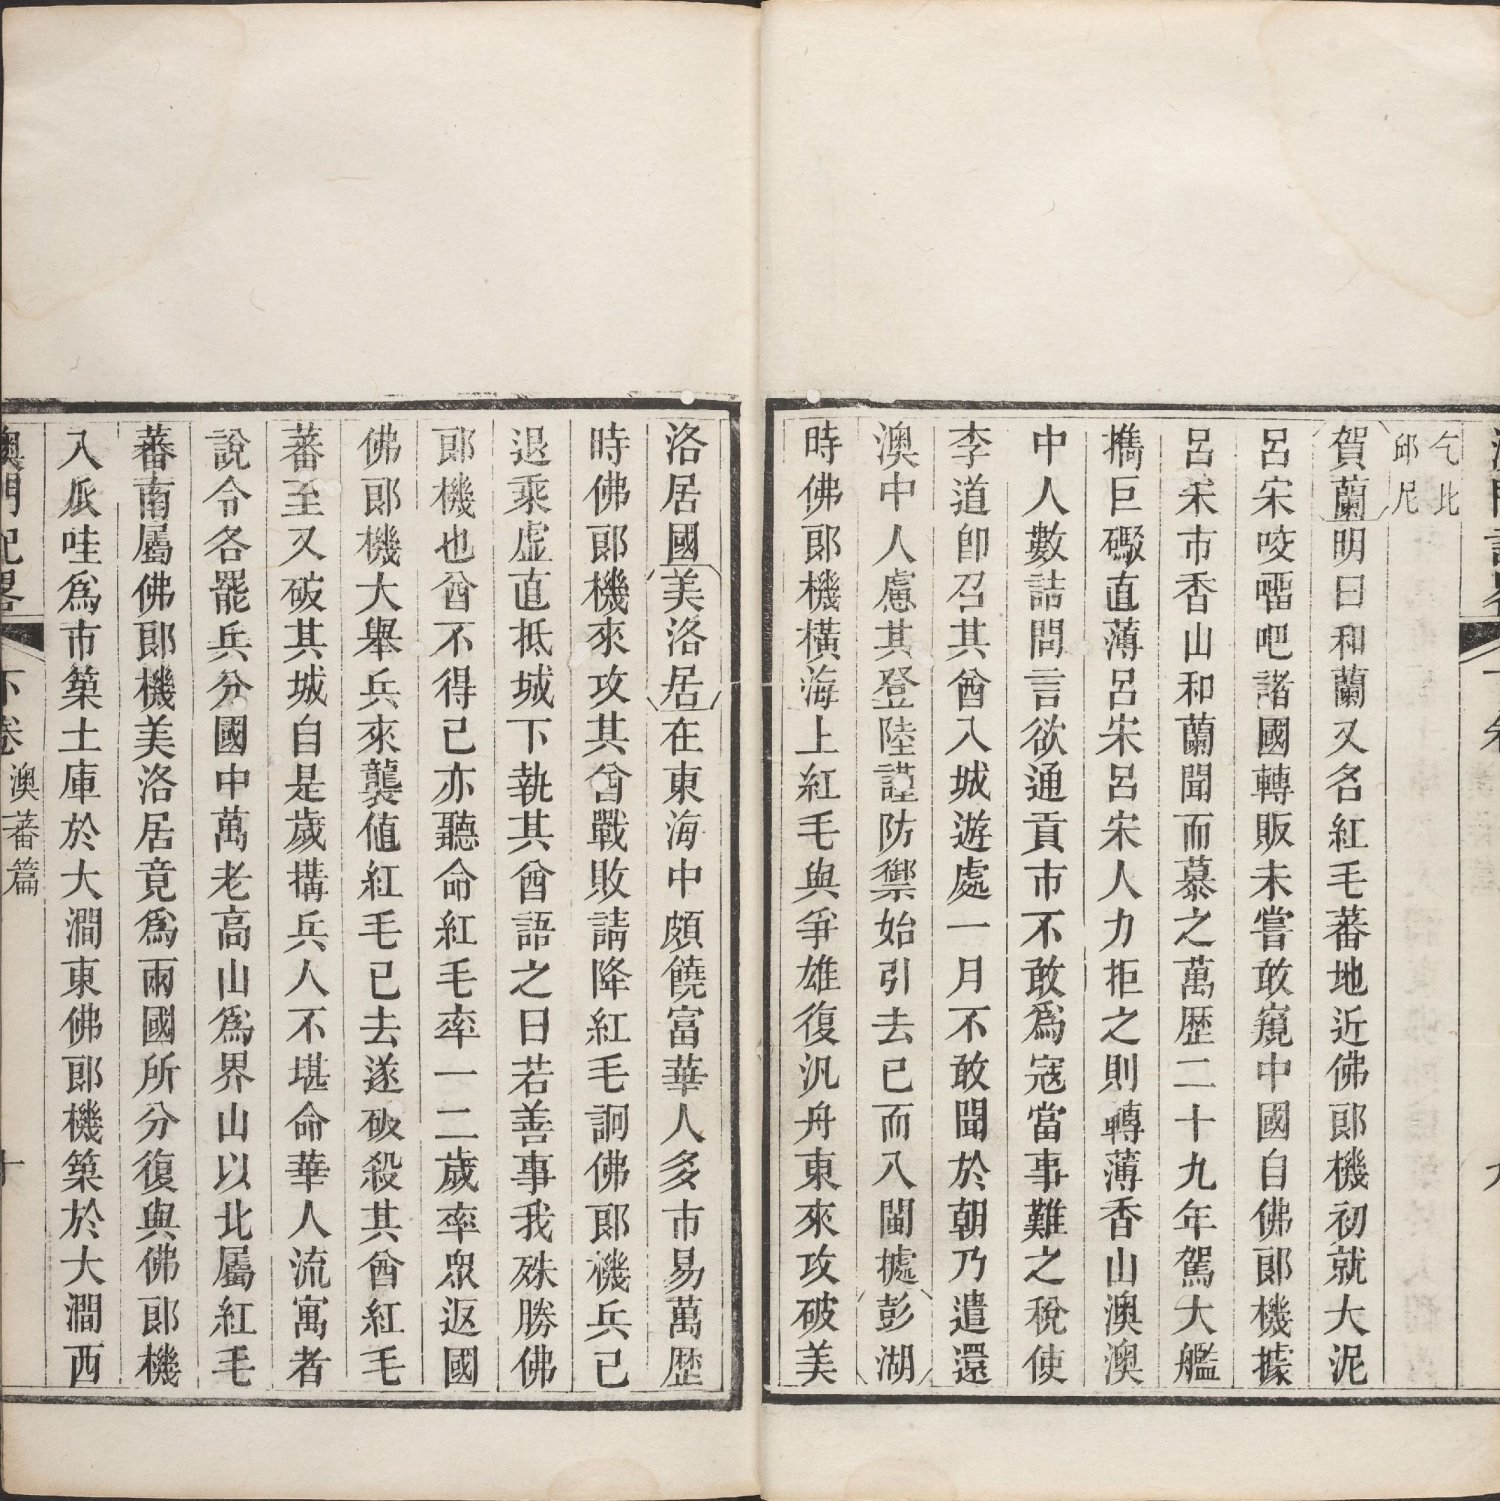 乞北
邱尼
賀蘭明曰和蘭又名紅毛蕃地近佛郎機初就大泥
呂宋咬𠺕吧諸國轉販未嘗敢窺中國自佛郎機據
呂宋市香山和蘭聞而慕之萬歷二十九年駕大艦
擕巨礮直薄呂宋呂宋人力拒之則轉薄香山澳澳
中人數詰問言欲通貢市不敢為寇當事難之稅使
李道卽召其酋入城遊處一月不敢聞於朝乃遣還
澳中人慮其登陸謹防禦始引去已而入閩據彭湖
時佛郎機橫海上紅毛與爭雄復汎舟東來攻破美
洛居國美洛居在東海中頗饒富華人多市易萬歷
時佛郎機來攻其酋戰敗請降紅毛詗佛郎機兵已
退乘虛直抵城下執其酋語之曰若善事我殊勝佛
郎機也酋不得已亦聽命紅毛率一二歲率眾返國
佛郎機大舉兵來襲值紅毛已去遂破殺其酋紅毛
蕃至又破其城自是歲搆兵人不堪命華人流寓者
說令各罷兵分國中萬老高山為界山以北屬紅毛
蕃南屬佛郎機美洛居竟為兩國所分復與佛郎機
入𤓰哇為市築土庫於大澗東佛郎機築於大澗西
澳門記畧 下卷 澳蕃篇 十